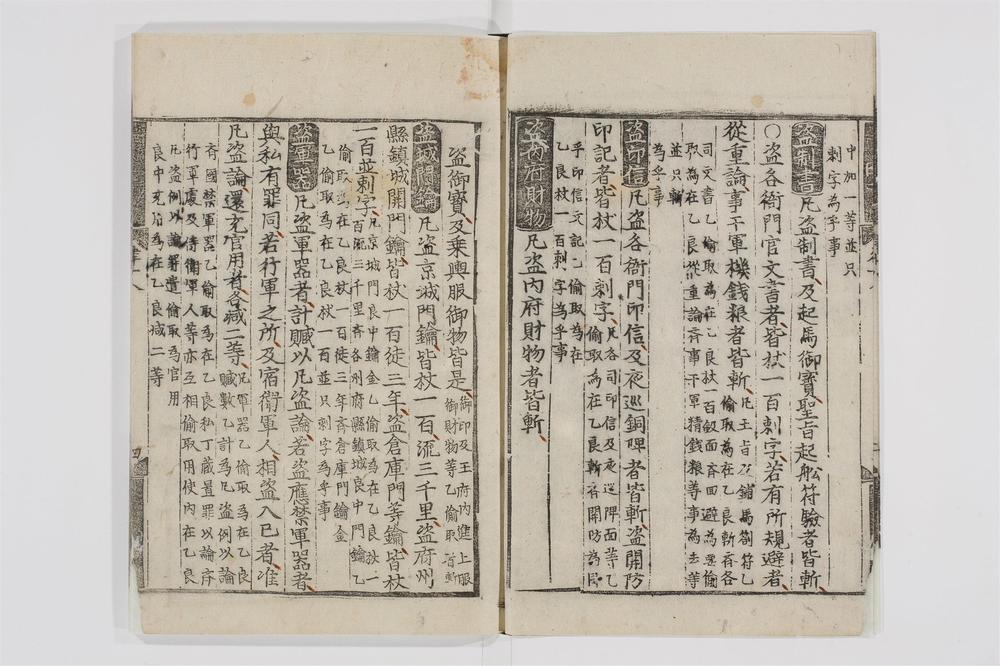 中加一等並只
刺字爲乎事
盜制書 凡盜制書及起馬御寶聖旨起船符驗者皆斬
○盜各衙門官文書者皆杖一百刺字若有所規避者
從重論事干軍機錢粮者皆斬
凡王旨及鋪馬劄符乙
偷取爲在乙良斬齊各
司文書乙偷取爲在乙良杖一百鈒面齊回避爲要偷
取爲在乙良從重論齊事干軍情錢粮等事爲去等
並只斬
爲乎事
盜印信 凡盜各衙門印信及夜巡銅牌者皆斬盜關防
印記者皆杖一百刺字
凡各司印信及夜巡牌面等乙
偷取爲在乙良斬齊開防爲周
乎印信文記乙偷取爲在
乙良杖一百刺字爲乎事
盜內府財物 凡盜內府財物者皆斬
盜御寶及乘輿服御物皆是
御印及王府內進上服
御財物等乙偷取首斬
盜城門鑰 凡盜京城門鑰皆杖一百流三千里盜府州
縣鎮城關門鑰皆杖一百徒三年盜倉庫門等鑰皆杖
一百並刺字
凡京城門良中鑰金乙偷取爲在乙良杖一
百流三千里齊各州府縣鎮城良中門鑰乙
偷取爲在乙良杖一百徒三年齊倉庫門鑰金
乙偷取爲在乙良杖一百並只刺字爲乎事
盜軍器 凡盜軍器者計贓以凡盜論若盜應禁軍器者
與私有罪同若行軍之所及宿衛軍人相盜入已者准
凡盜論還充官用者各減二等
凡軍器乙偷取爲在乙良
贓數乙計爲凡盜例以論
齊國禁軍器乙偷取爲在乙良私丁藏置罪以論齊
行軍處及侍衛軍人等亦互相偷取用使內在乙良
凡盜例以論罪遣偷取爲官用
良中充給爲在乙良減二等